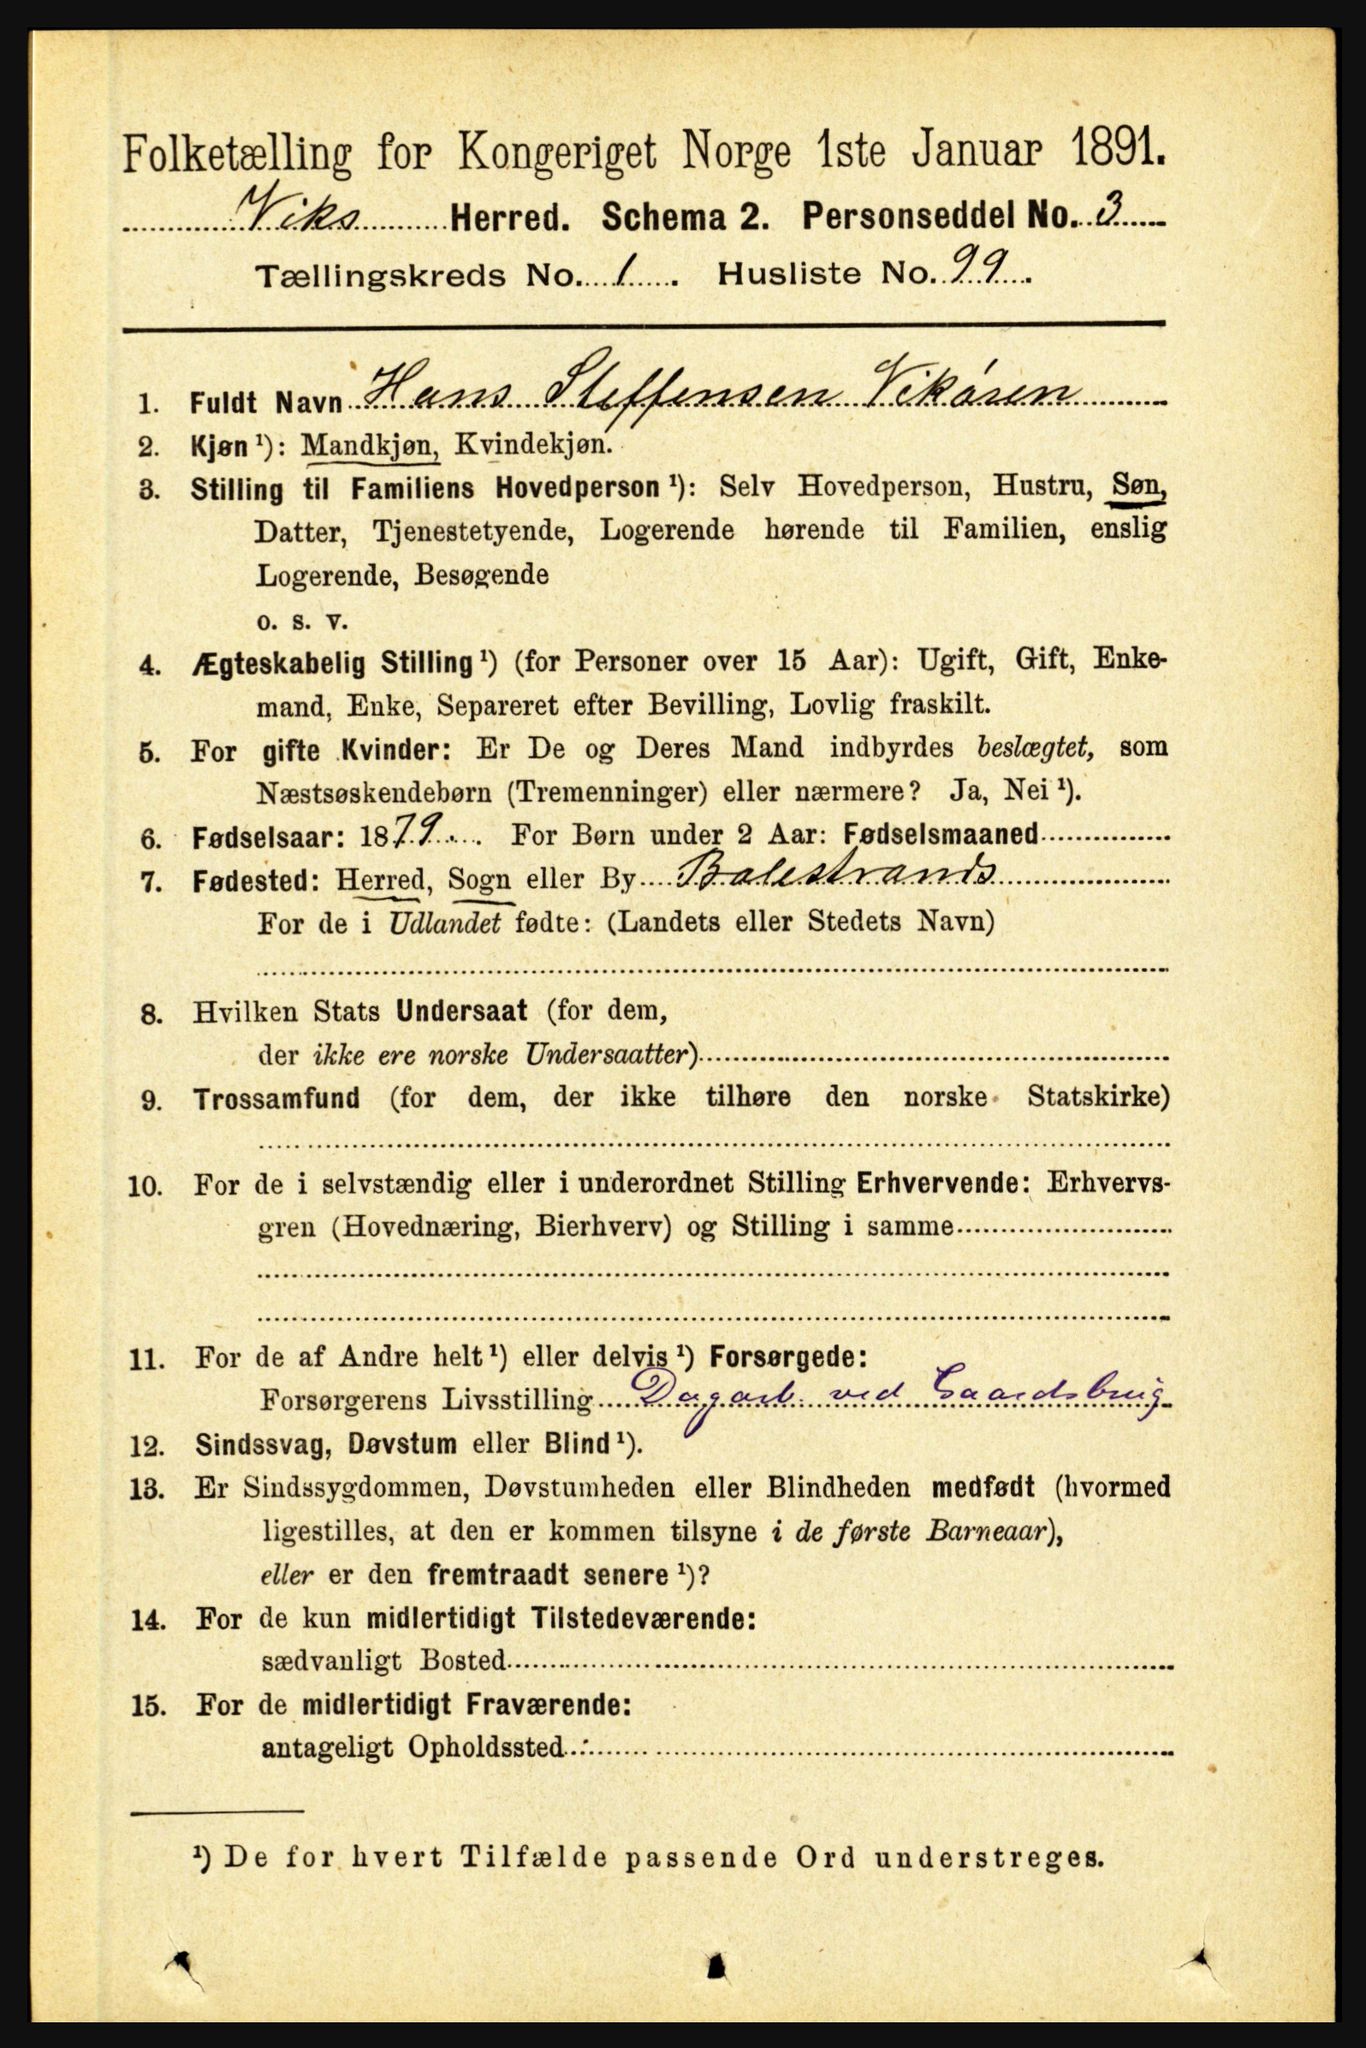 Folketælling for Kongeriget Norge 1ste Januar 1891.
Viks Herred. Schema 2. Personseddel No. 3
Tællingskreds No. 1. Husliste No. 99.
1. Fuldt Navn Hans Steffensen Vikøren
2. Kjøn ¹): Mandkjøn, Kvindekjøn.
3. Stilling til Familiens Hovedperson ¹): Selv Hovedperson, Hustru, Søn,
Datter, Tjenestetyende, Logerende hørende til Familien, enslig
Logerende, Besøgende
o. s. v.
4. Ægteskabelig Stilling ¹) (for Personer over 15 Aar): Ugift, Gift, Enke-
mand, Enke, Separeret efter Bevilling, Lovlig fraskilt.
5. For gifte Kvinder: Er De og Deres Mand indbyrdes beslægtet, som
Næstsøskendebørn (Tremenninger) eller nærmere? Ja, Nei ¹).
6. Fødselsaar: 1879. For Børn under 2 Aar: Fødselsmaaned
7. Fødested: Herred, Sogn eller By Balestrands
For de i Udlandet fødte: (Landets eller Stedets Navn)
8. Hvilken Stats Undersaat (for dem,
der ikke ere norske Undersaatter)
9. Trossamfund (for dem, der ikke tilhøre den norske Statskirke)
10. For de i selvstændig eller i underordnet Stilling Erhvervende: Erhvervs-
gren (Hovednæring, Bierhverv) og Stilling i samme
11. For de af Andre helt ¹) eller delvis ¹) Forsørgede:
Forsørgerens Livsstilling Dagarb. ved Gaardsbrug
12. Sindssvag, Døvstum eller Blind ¹).
13. Er Sindssygdommen, Døvstumheden eller Blindheden medfødt (hvormed
ligestilles, at den er kommen tilsyne i de første Barneaar),
eller er den fremtraadt senere ¹)?
14. For de kun midlertidigt Tilstedeværende:
sædvanligt Bosted
15. For de midlertidigt Fraværende:
antageligt Opholdssted
¹) De for hvert Tilfælde passende Ord understreges.